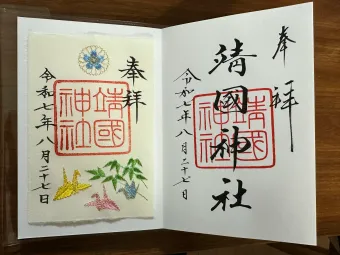 奉拝
靖國神社
令和七年八月二十七日
奉拝
靖國神社
靖國神社
令和七年八月二十七日